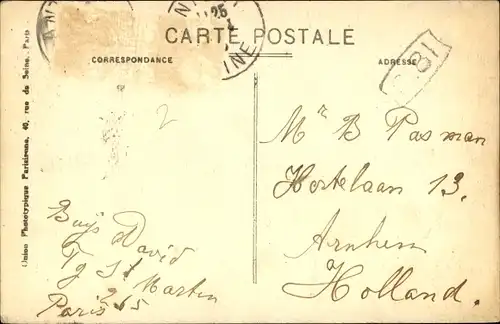 CARTE POSTALE
CORRESPONDANCE
ADRESSE
25
INE
B1
2
Mr B Pasman
Hortelaan 13.
Arnhem
Holland.
Buys David
St Martin
Paris
Union Phototypique Parisienne, 40, rue de Seine, Paris